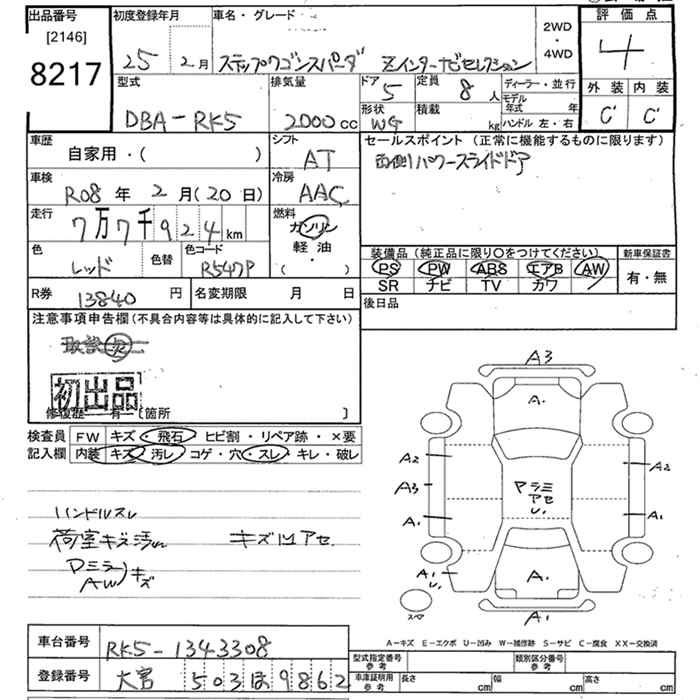 出品番号 初度登録年月 車名・グレード 評価点
[2146]
8217
25 2月 ステップワゴンスパーダ Zインターナビセレクション
2WD
・
4WD
4
型式 排気量 ドア 定員 ディーラー・並行 外装 内装
DBA-RK5 2000cc 5 8人 モデル年式 年
形状 積載 C' C'
WG kg ハンドル 左・右
車歴 シフト セールスポイント (正常に機能するものに限ります)
自家用・( ) AT 両側パワースライドドア
車検 冷房
R08年 2月(20日) AAC
走行 燃料
7万7千924km ガソリン
軽油
( )
色 色替 色コード 装備品 (純正品に限り○をつけてください) 新車保証書
レッド R547P PS PW ABS エアB AW 有・無
SR ナビ TV カワ
R券 13840円 名変期限 月 日 後日品
注意事項申告欄(不具合内容等は具体的に記入して下さい)
初出品
修復歴 有 〔箇所 〕
検査員 FW キズ・飛石・ヒビ割・リペア跡・×要
記入欄 内装 キズ・汚レ・コゲ・穴・スレ・キレ・破レ
A3
A.
A2 A2
A3 アラミ
アセ
A1 A1
ハンドルスレ
荷室キズ汚レ キズ アセ
Dミラー キズ
AW
A1 A.
スペア A1
A-キズ E-エクボ U-凹み W-補修跡 S-サビ C-腐食 XX-交換済
車台番号 RK5-1343308
登録番号 大宮 503 ほ 9862
型式指定番号 参考 類別区分番号 参考
車庫証明用 参考 長さ cm 幅 cm 高さ cm